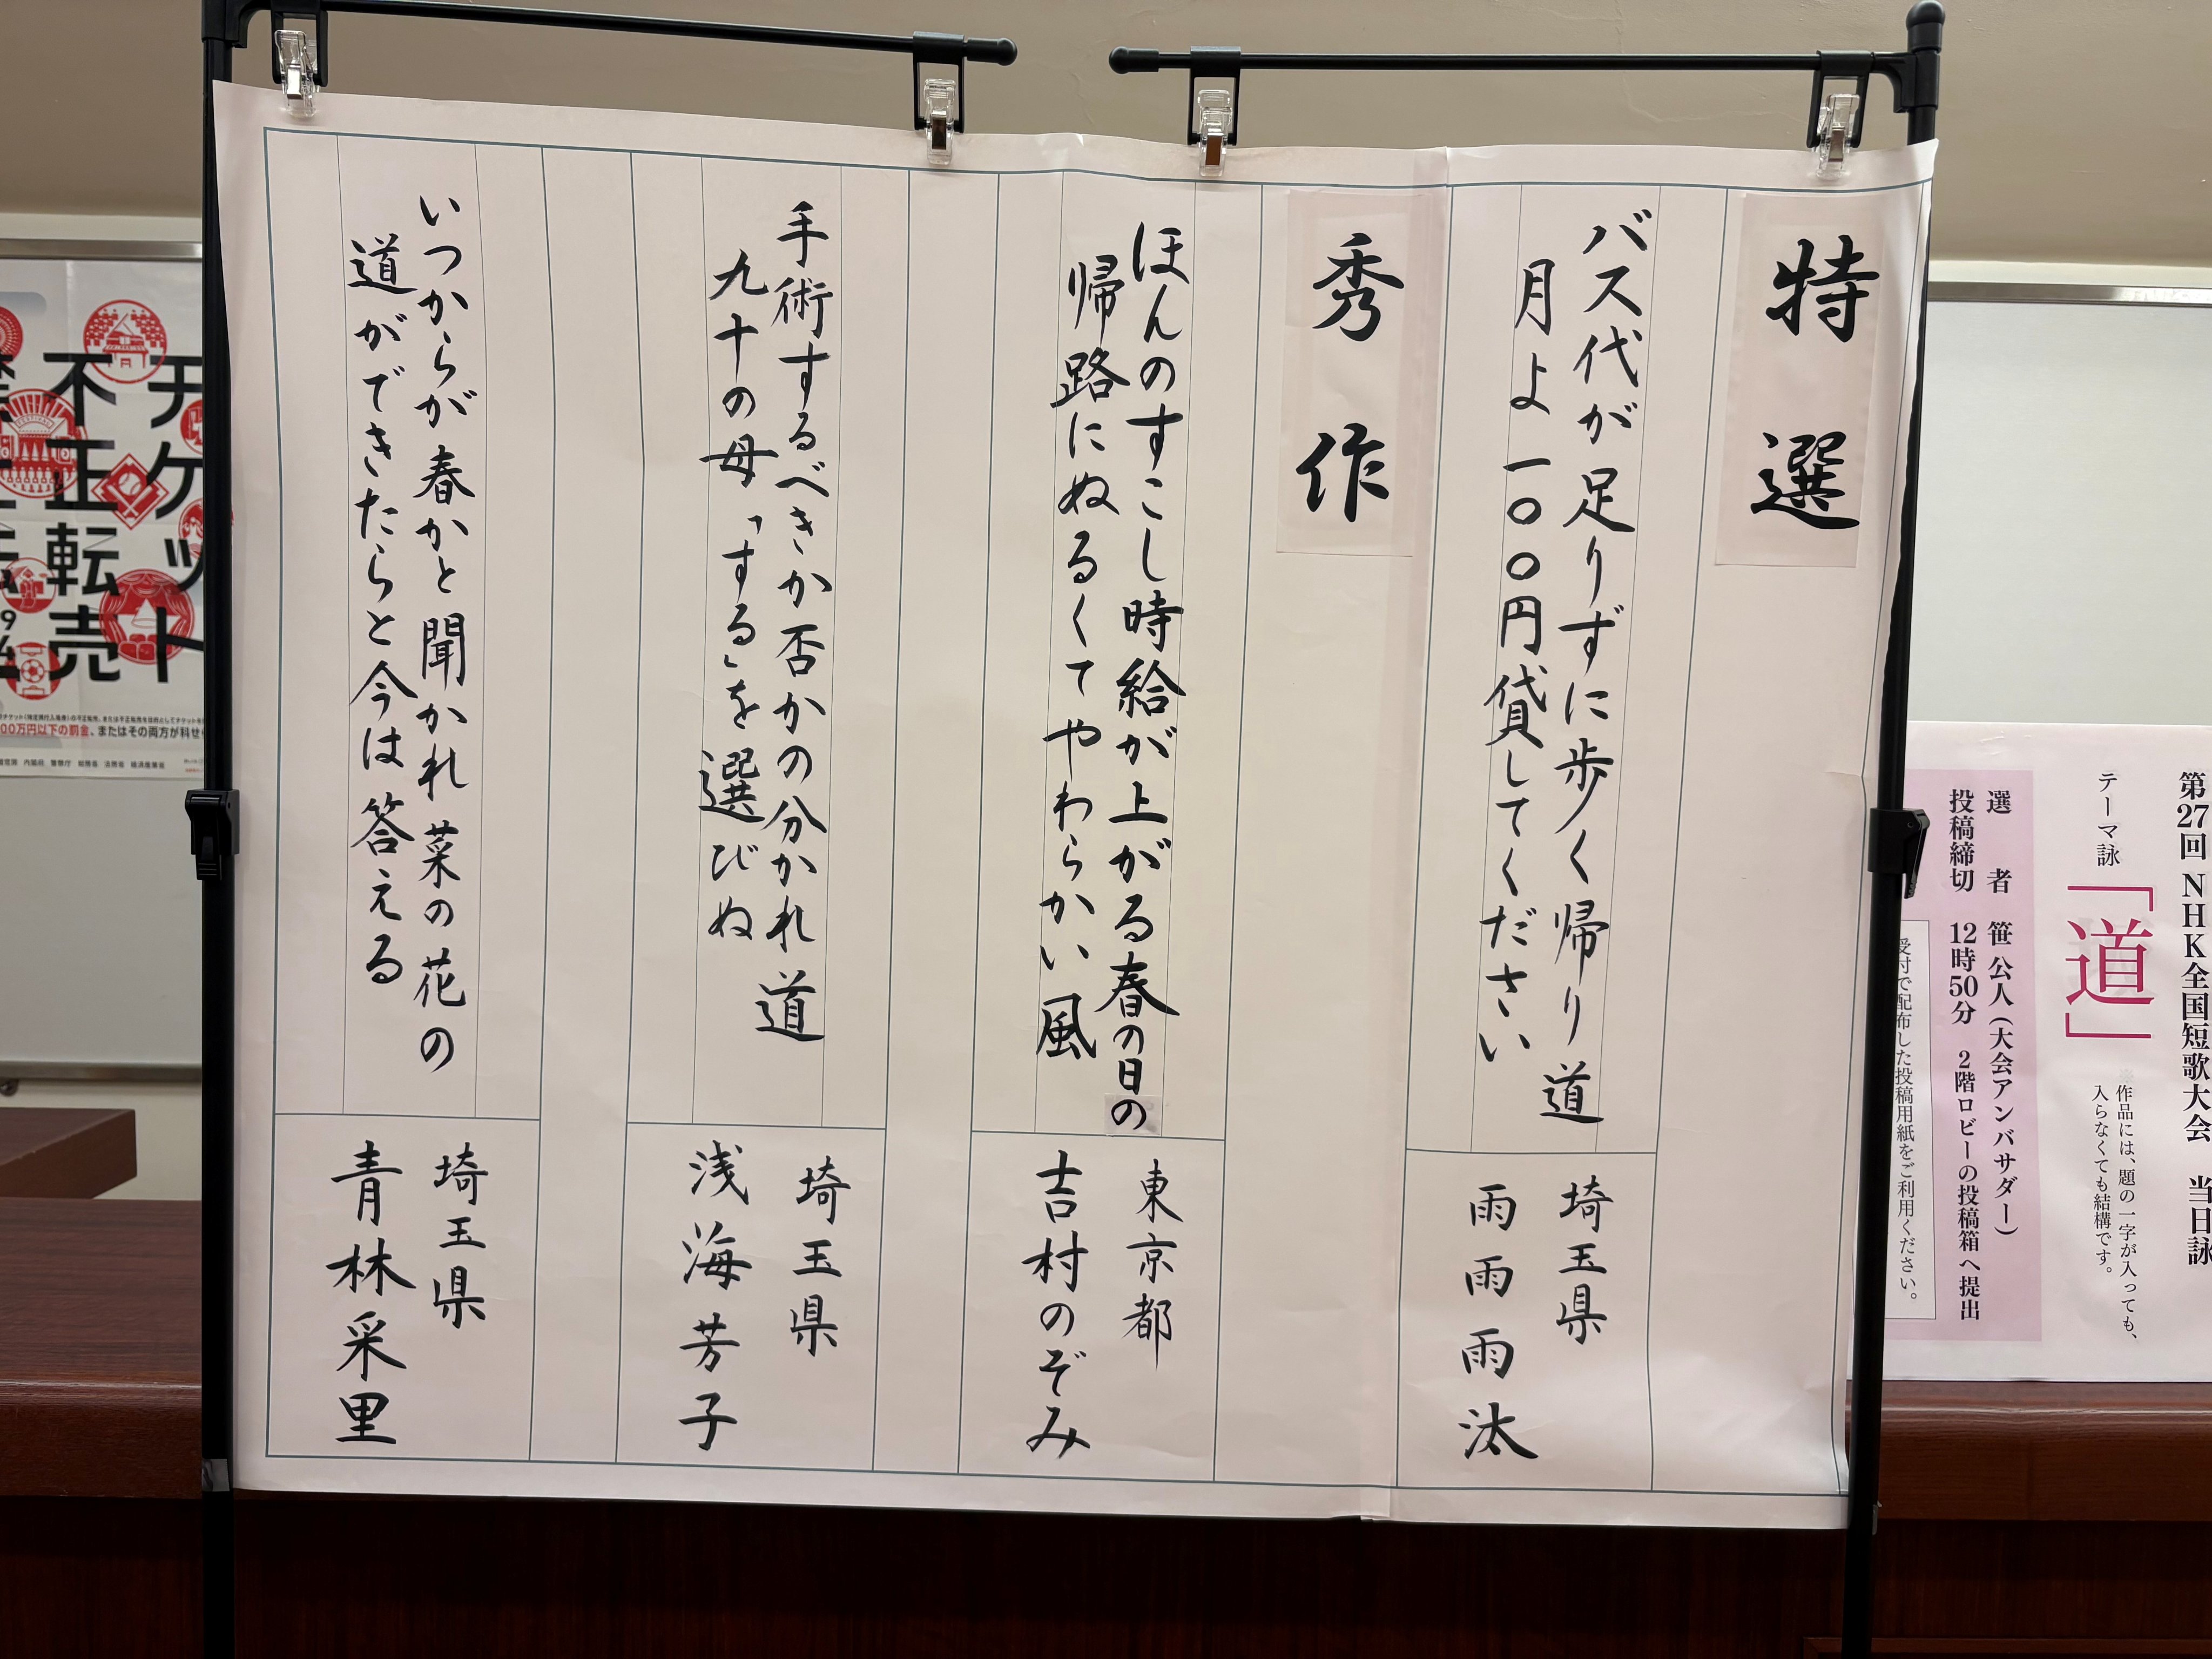 特選
バス代が足りずに歩く帰り道
月よ一〇〇円貸してください
埼玉県
雨雨雨汰
秀作
ほんのすこし時給が上がる春の日の
帰路にぬるくてやわらかい風
東京都
吉村のぞみ
手術するべきか否かの分かれ道
九十の母「する」を選びぬ
埼玉県
浅海芳子
いつからが春かと聞かれ菜の花の
道ができたらと今は答える
埼玉県
青林采里
第27回NHK全国短歌大会 当日詠
テーマ詠「道」
※作品には、題の一字が入っても、
入らなくても結構です。
選者 笹公人(大会アンバサダー)
投稿締切 12時50分 2階ロビーの投稿箱へ提出
受付で配布した投稿用紙をご利用ください。
チケット
不正転売
00万円以下の罰金、またはその両方が科せ
内閣府 警察庁 総務省 法務省 経済産業省